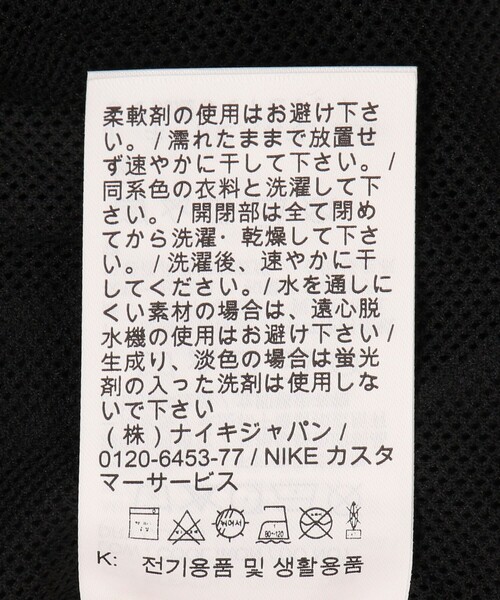 柔軟剤の使用はお避け下さ
い。 / 濡れたままで放置せ
ず速やかに干して下さい。 /
同系色の衣料と洗濯して下
さい。 / 開閉部は全て閉め
てから洗濯・ 乾燥して下さ
い。 / 洗濯後、速やかに干
してください。/ 水を通しに
くい素材の場合は、遠心脱
水機の使用はお避け下さい /
生成り、淡色の場合は蛍光
剤の入った洗剤は使用しな
いで下さい
( 株 ) ナイキジャパン /
0120-6453-77 / NIKE カスタ
マーサービス
80~120
K: 전기용품 및 생활용품